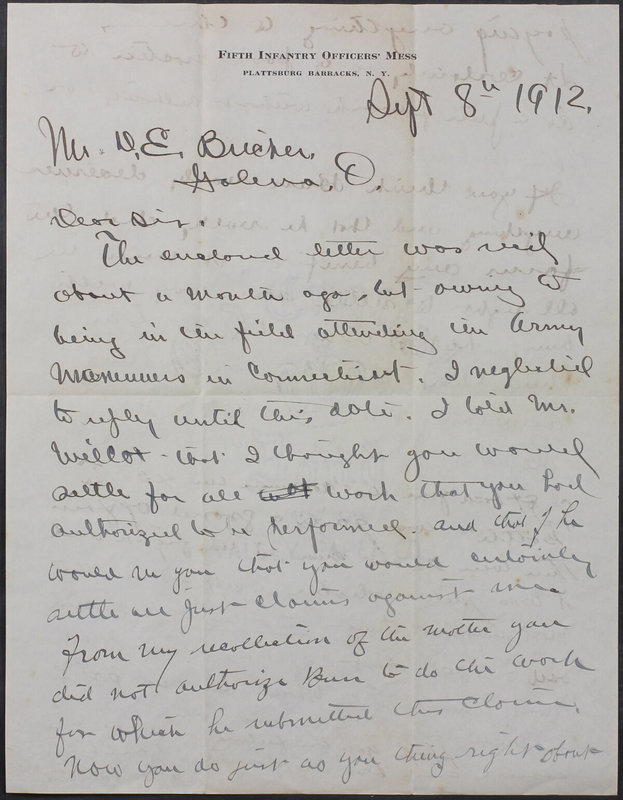 FIFTH INFANTRY OFFICERS' MESS
PLATTSBURG BARRACKS, N. Y.
Sept 8th 1912.
Mr. D. E. Bricker,
Galena, O.
Dear Sir,
The enclosed letter was rec'd
about a month ago, but owing to
being in the field attending the Army
Maneuvers in Connecticut, I neglected
to reply until this date. I told Mr.
that I thought you would
settle for all work that you had
authorized to be performed. and that if he
would see you that you would certainly
settle all just claims against me
From my recollection of the matter you
did not authorize him to do the work
for which he submitted this claim.
Now you do just as you thing right about